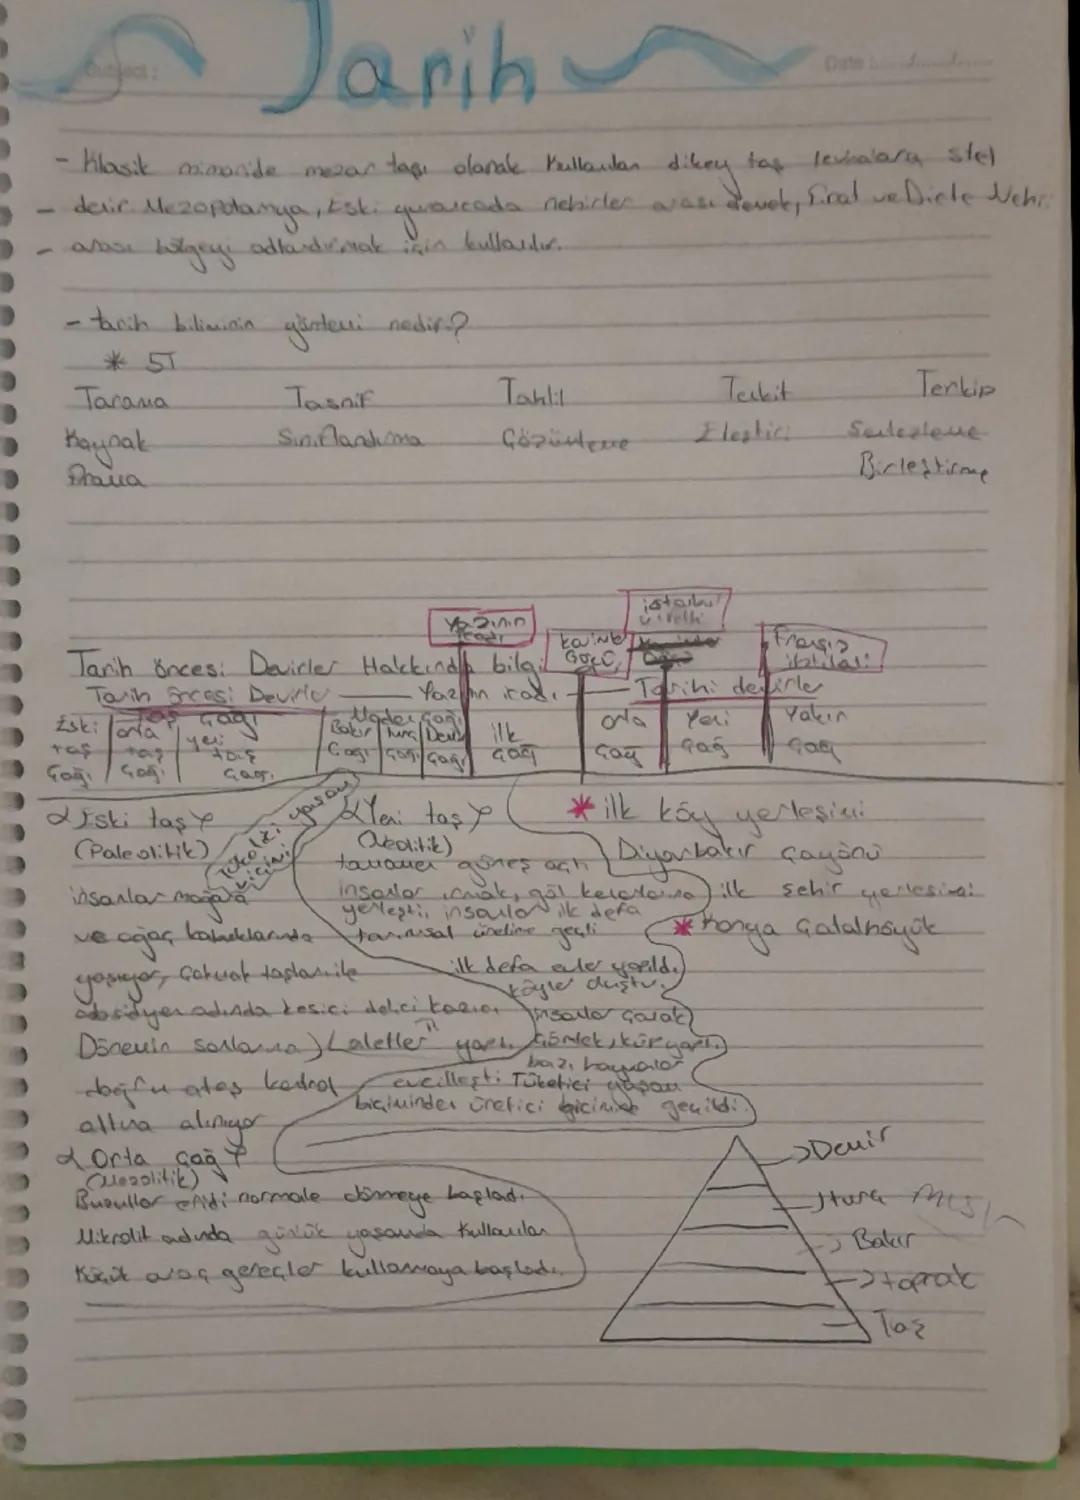 Tarih
Subject:
Date
- Klasik mimaride mezar taşı olarak kullanılan dikey taş levhalara stel
- denir. Mezopotamya, Eski yunancada nehirler arası demek, Fırat ve Dicle Nehri
- arası bölgeyi adlandırmak için kullanılır.
- tarih biliminin yöntemi nedir?
* 5T
Tarama Tasnif Tahlil Tenkit Terkip
Kaynak Sınıflandırma Çözümleme Eleştiri Sentezleme
Arama Birleştirme
Yazının icadı
istanbul
Kavimler Göçü
Fransız ihtilali
Tarih öncesi Devirler Hakkında bilgi
Tarih öncesi Devirler Yazının icadı Tarihi devirler
Taş Çağı Maden Çağı
Eski taş Çağı orta taş Çağı yeni taş Çağı Bakır Çağı Tunç Çağı Demir Çağı ilk Çağ orta Çağ Yeni Çağ Yakın Çağ
Eski taş
(Paleolitik)
insanlar mağara
ve ağaç kabuklarında
yaşıyor, Çakmak taşları ile
obsidyen adında kesici delici kazıcı
aletler yaptı.
Dönemin sonlarına
doğru ateş kontrol
altına alınıyor
Tüketici yaşam biçimi
Orta Çağ
(Mezolitik)
Buzullar eridi normale dönmeye başladı.
Mikrolit adında günlük yaşamda kullanılan
Küçük araç gereçler kullanmaya başladı.
Yeni taş
(Neolitik)
tamamen güneş açtı
insanlar ırmak, göl kenarlarına
yerleşti, insanlar ilk defa
tarımsal üretime geçti
ilk defa evler yapıldı.
köyler oluştu.
insanlar Çanak
Çömlek, kür yaptı.
bazı hayvanlar
evcilleşti. Tüketici yaşam
biçiminden üretici biçimine geçildi.
* ilk köy yerleşimi
Diyarbakır Çayönü
ilk şehir yerleşimi
* Konya Çatalhöyük
Demir
Tunç
Bakır
toprak
Taş